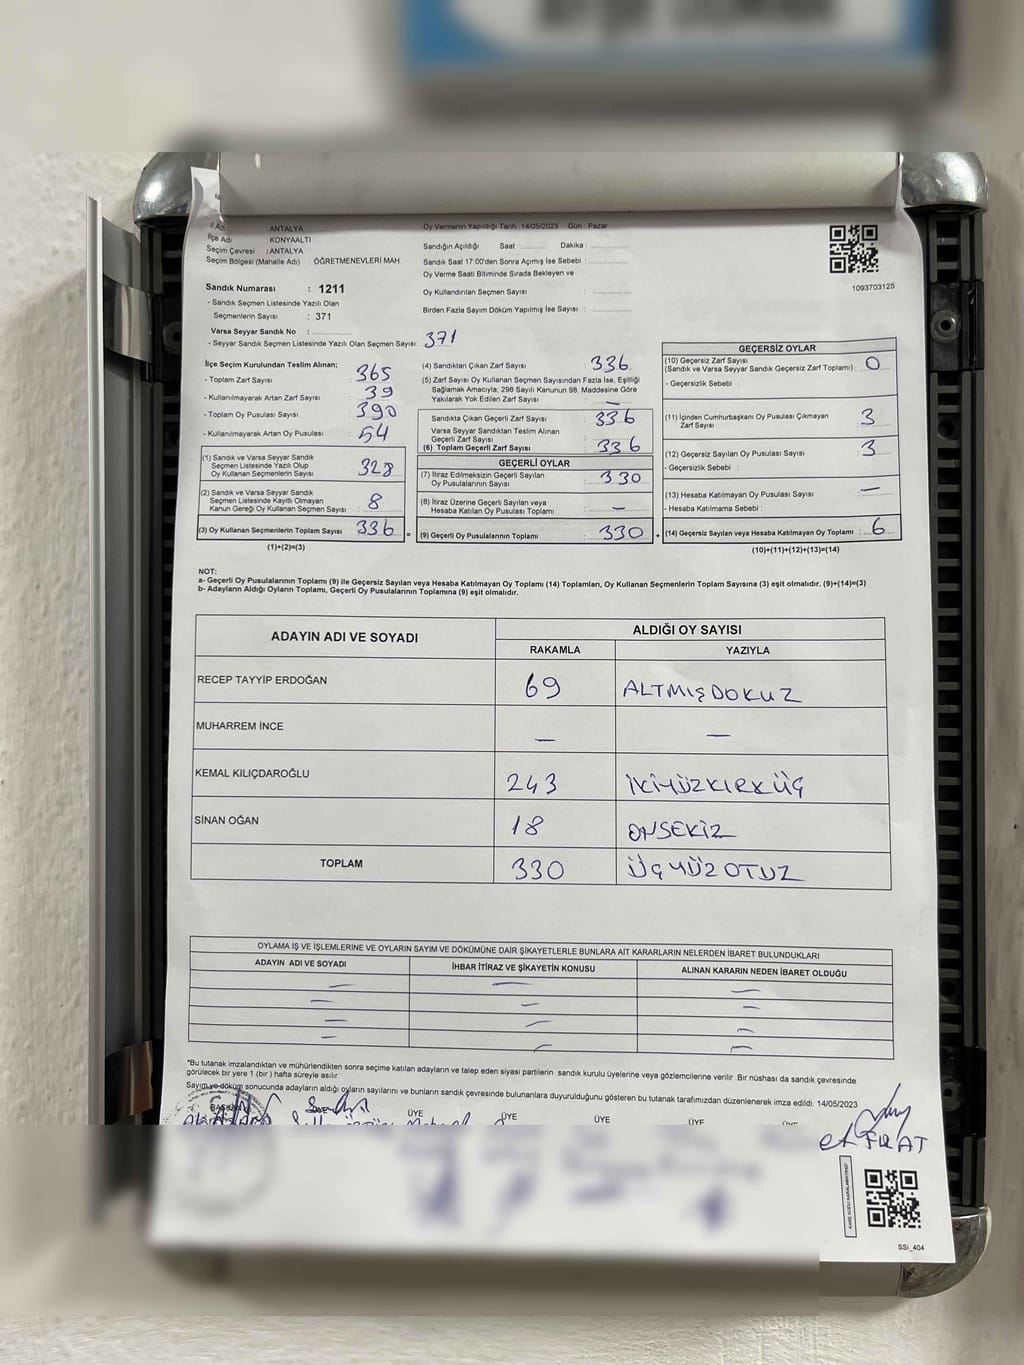 ANTALYA
Oy Vermenin Yapıldığı Tarih : 14/05/2023 Gün : Pazar
İlçe Adı KONYAALTI
Seçim Çevresi : ANTALYA
Seçim Bölgesi (Mahalle Adı) : ÖĞRETMENEVLERİ MAH.
Sandığın Açıldığı Saat : Dakika :
Sandık Saat 17:00'den Sonra Açımış İse Sebebi :
Oy Verme Saati Bitiminde Sırada Bekleyen ve
Oy Kullandırılan Seçmen Sayısı :
Birden Fazla Sayım Döküm Yapılmış İse Sayısı :
1093703125
Sandık Numarası : 1211
- Sandık Seçmen Listesinde Yazılı Olan
Seçmenlerin Sayısı : 371
Varsa Seyyar Sandık No :
- Seyyar Sandık Seçmen Listesinde Yazılı Olan Seçmen Sayısı: 371
İlçe Seçim Kurulundan Teslim Alınan;
- Toplam Zarf Sayısı : 365
- Kullanılmayarak Artan Zarf Sayısı : 39
- Toplam Oy Pusulası Sayısı : 390
- Kullanılmayarak Artan Oy Pusulası : 54
(1) Sandık ve Varsa Seyyar Sandık
Seçmen Listesinde Yazılı Olup
Oy Kullanan Seçmenlerin Sayısı : 328
(2) Sandık ve Varsa Seyyar Sandık
Seçmen Listesinde Kayıtlı Olmayan
Kanun Gereği Oy Kullanan Seçmen Sayısı : 8
(3) Oy Kullanan Seçmenlerin Toplam Sayısı : 336 =
(1)+(2)=(3)
(4) Sandıktan Çıkan Zarf Sayısı : 336
(5) Zarf Sayısı Oy Kullanan Seçmen Sayısından Fazla İse, Eşitliği
Sağlamak Amacıyla; 298 Sayılı Kanunun 98. Maddesine Göre
Yakılarak Yok Edilen Zarf Sayısı : —
Sandıkta Çıkan Geçerli Zarf Sayısı : 336
Varsa Seyyar Sandıktan Teslim Alınan
Geçerli Zarf Sayısı :
(6) Toplam Geçerli Zarf Sayısı : 336
GEÇERLİ OYLAR
(7) İtiraz Edilmeksizin Geçerli Sayılan
Oy Pusulalarının Sayısı : 330
(8) İtiraz Üzerine Geçerli Sayılan veya
Hesaba Katılan Oy Pusulası Toplamı : —
(9) Geçerli Oy Pusulalarının Toplamı : 330 +
GEÇERSİZ OYLAR
(10) Geçersiz Zarf Sayısı
(Sandık ve Varsa Seyyar Sandık Geçersiz Zarf Toplamı) : 0
- Geçersizlik Sebebi :
(11) İçinden Cumhurbaşkanı Oy Pusulası Çıkmayan
Zarf Sayısı : 3
(12) Geçersiz Sayılan Oy Pusulası Sayısı : 3
- Geçersizlik Sebebi :
(13) Hesaba Katılmayan Oy Pusulası Sayısı : —
- Hesaba Katılmama Sebebi :
(14) Geçersiz Sayılan veya Hesaba Katılmayan Oy Toplamı : 6
(10)+(11)+(12)+(13)=(14)
NOT:
a- Geçerli Oy Pusulalarının Toplamı (9) ile Geçersiz Sayılan veya Hesaba Katılmayan Oy Toplamı (14) Toplamları, Oy Kullanan Seçmenlerin Toplam Sayısına (3) eşit olmalıdır. (9)+(14)=(3)
b- Adayların Aldığı Oyların Toplamı, Geçerli Oy Pusulalarının Toplamına (9) eşit olmalıdır.
ADAYIN ADI VE SOYADI ALDIĞI OY SAYISI
RAKAMLA YAZIYLA
RECEP TAYYİP ERDOĞAN 69 ALTMIŞDOKUZ
MUHARREM İNCE — —
KEMAL KILIÇDAROĞLU 243 İKİYÜZKIRKÜÇ
SİNAN OĞAN 18 ONSEKİZ
TOPLAM 330 ÜÇYÜZOTUZ
OYLAMA İŞ VE İŞLEMLERİNE VE OYLARIN SAYIM VE DÖKÜMÜNE DAİR ŞİKAYETLERLE BUNLARA AİT KARARLARIN NELERDEN İBARET BULUNDUKLARI
ADAYIN ADI VE SOYADI İHBAR İTİRAZ VE ŞİKAYETİN KONUSU ALINAN KARARIN NEDEN İBARET OLDUĞU
— — —
— — —
— — —
— — —
*Bu tutanak imzalandıktan ve mühürlendikten sonra seçime katılan adayların ve talep eden siyasi partilerin sandık kurulu üyelerine veya gözlemcilerine verilir. Bir nüshası da sandık çevresinde
görülecek bir yere 1 (bir) hafta süreyle asılır.
Sayım ve döküm sonucunda adayların aldığı oyların sayılarını ve bunların sandık çevresinde bulunanlara duyurulduğunu gösteren bu tutanak tarafımızdan düzenlenerek imza edildi. 14/05/2023
BAŞKAN ÜYE ÜYE ÜYE ÜYE ÜYE ÜYE
FIRAT
SSİ_404